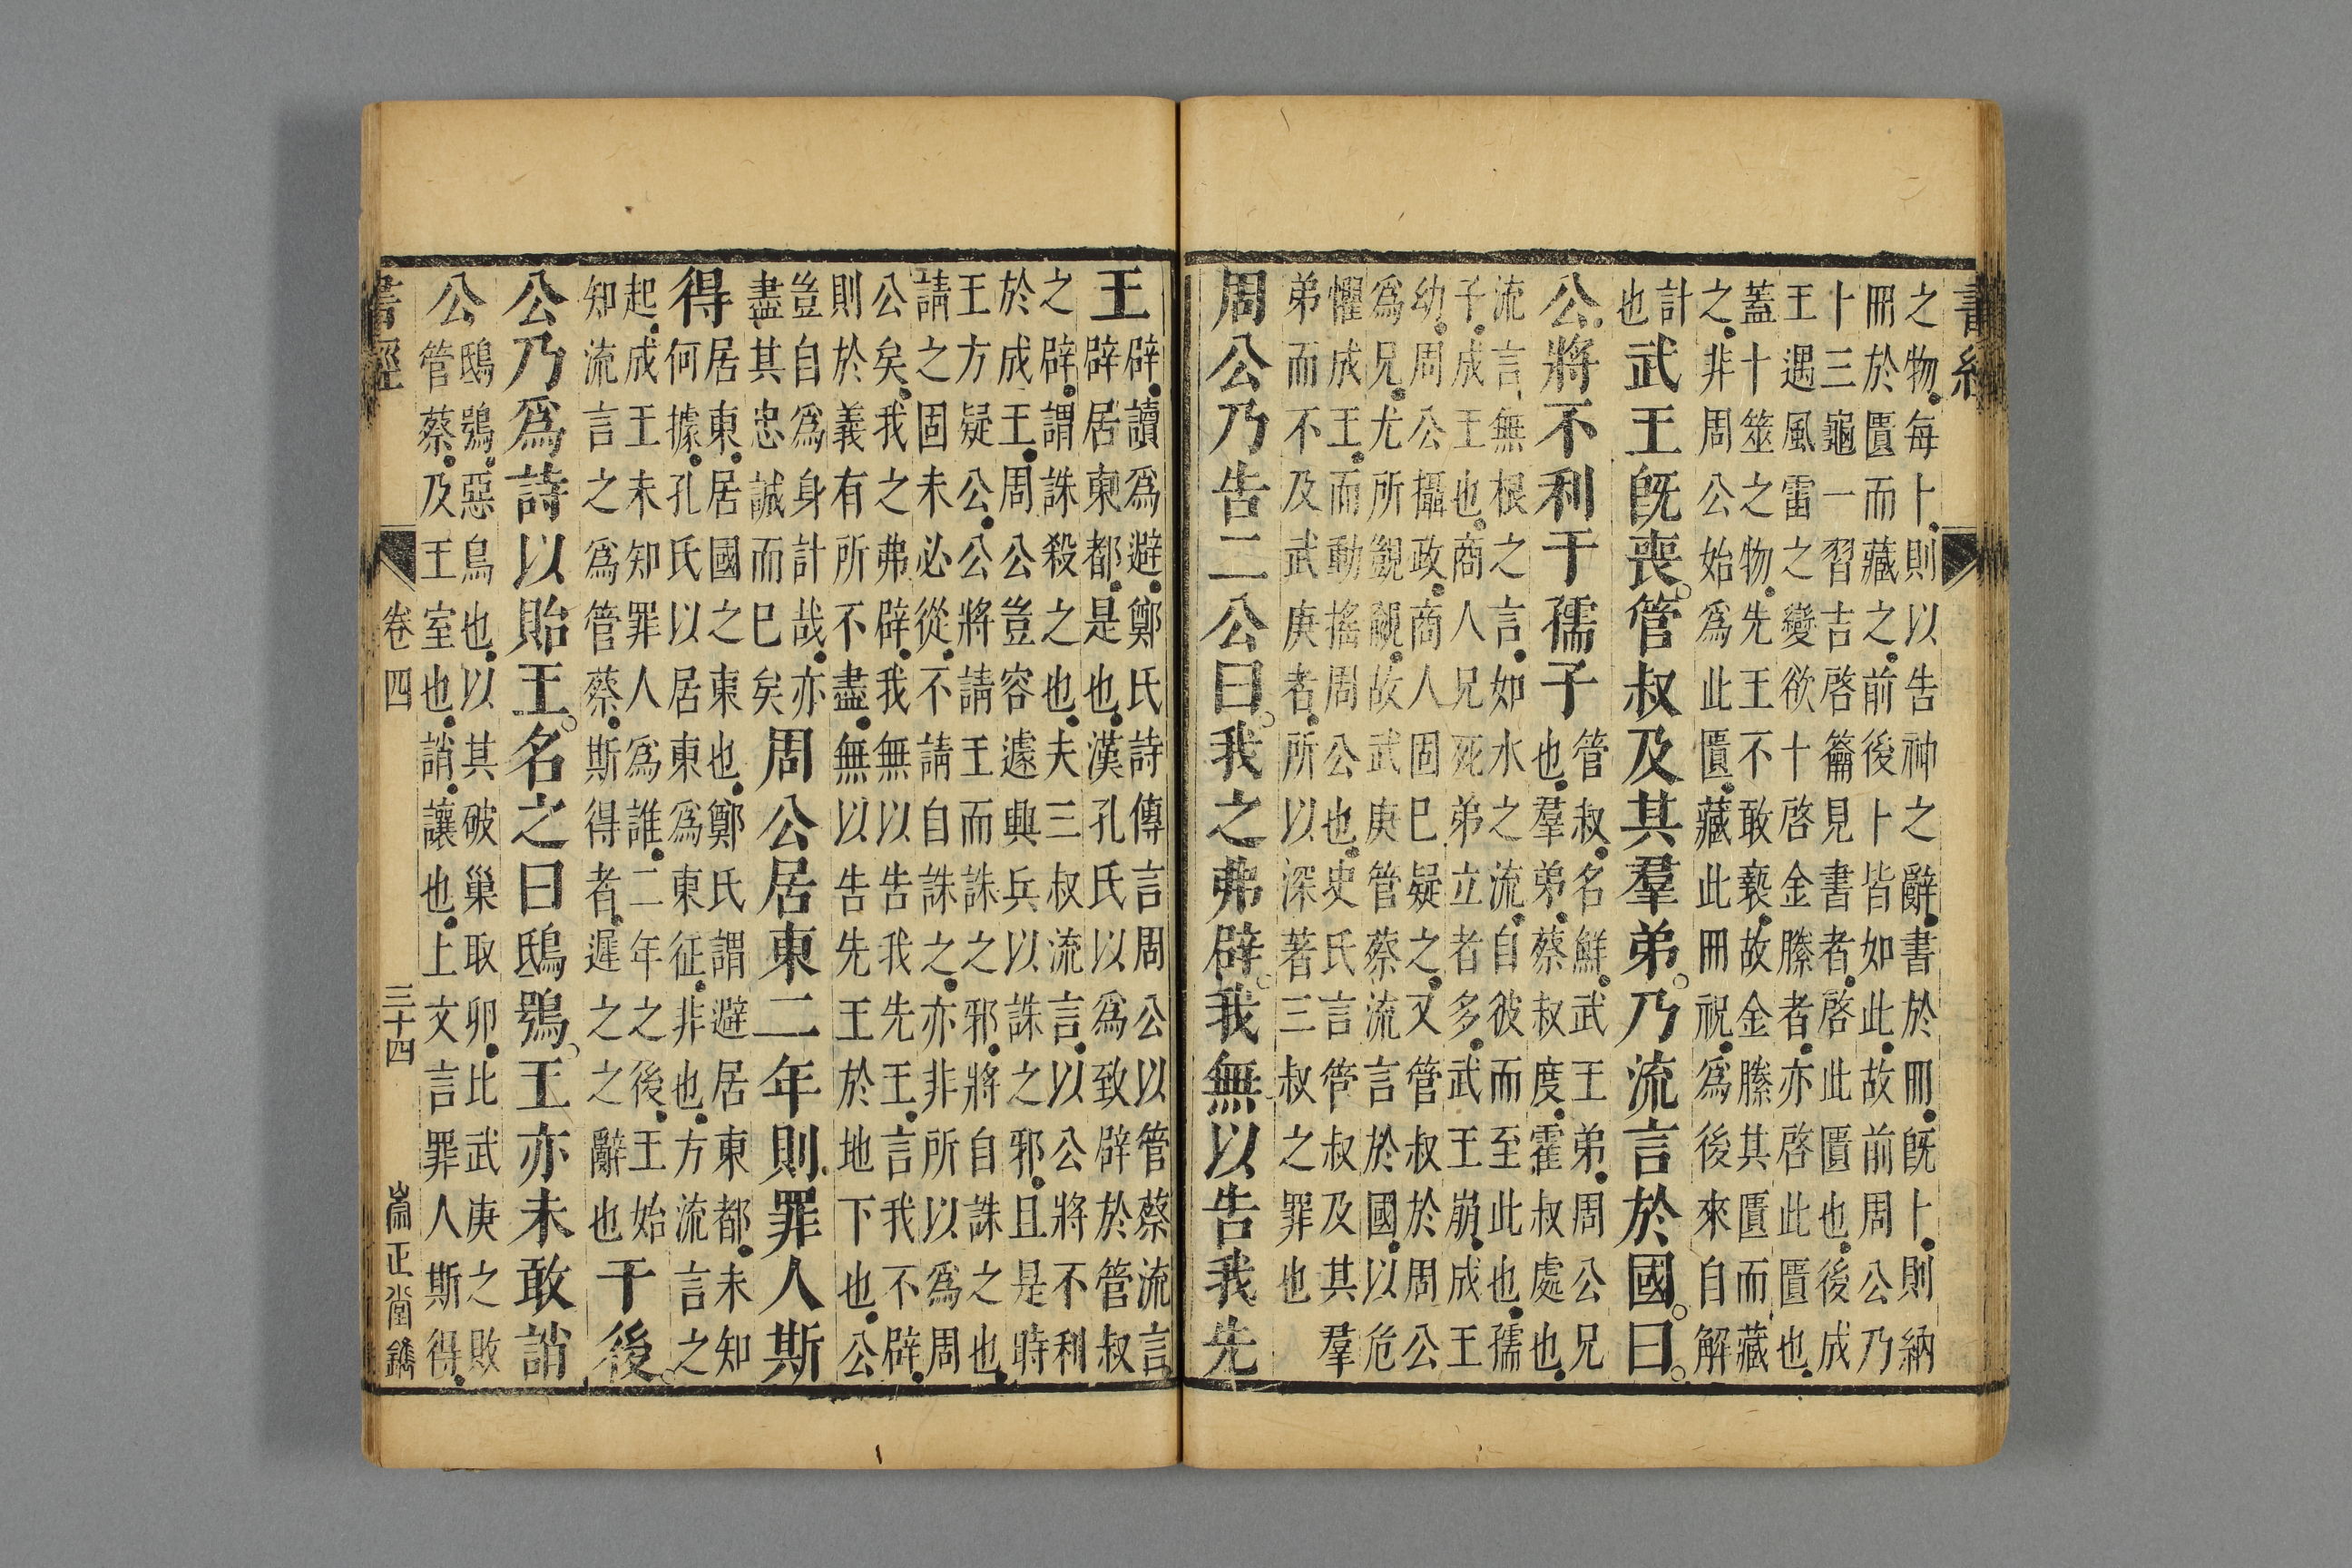 書經
之物每卜則以告神之辭書於冊既卜則納
冊於匱而藏之前後卜皆如此故前周公乃
卜三龜一習吉啓籥見書者啓此匱也後成
王遇風雷之變欲十啓金縢者亦啓此匱也
蓋十筮之物先王不敢褻故金縢其匱而藏
之非周公始爲此匱藏此冊祝爲後來自解
計
也
武王既喪管叔及其羣弟乃流言於國曰
公將不利于孺子
管叔名鮮武王弟周公兄
也羣弟蔡叔度霍叔處也
流言無根之言如水之流自彼而至此也孺
子成王也商人兄死弟立者多武王崩成王
幼周公攝政商人固巳疑之又管叔於周公
爲兄尤所覬覦故武庚管蔡流言於國以危
懼成王而動搖周公也史氏言管叔及其羣
弟而不及武庚者所以深著三叔之罪也
周公乃告二公曰我之弗辟我無以告我先
王
辟讀爲避鄭氏詩傳言周公以管蔡流言
辟居東都是也漢孔氏以爲致辟於管叔
之辟謂誅殺之也夫三叔流言以公將不利
於成王周公豈容遽興兵以誅之邪且是時
王方疑公公將請王而誅之邪將自誅之也
請之固未必從不請自誅之亦非所以爲周
公矣我之弗辟我無以告我先王言我不辟
則於義有所不盡無以告先王於地下也公
豈自爲身計哉亦
盡其忠誠而巳矣
周公居東二年則罪人斯
得
居東居國之東也鄭氏謂避居東都未知
何據孔氏以居東爲東征非也方流言之
起成王未知罪人爲誰二年之後王始
知流言之爲管蔡斯得者遲之之辭也
于後
公乃爲詩以貽王名之曰鴟鴞王亦未敢誚
公
鴟鴞惡鳥也以其破巢取卵比武庚之敗
管蔡及王室也誚讓也上文言罪人斯得
書經
卷四
三十四
崙正堂鐫